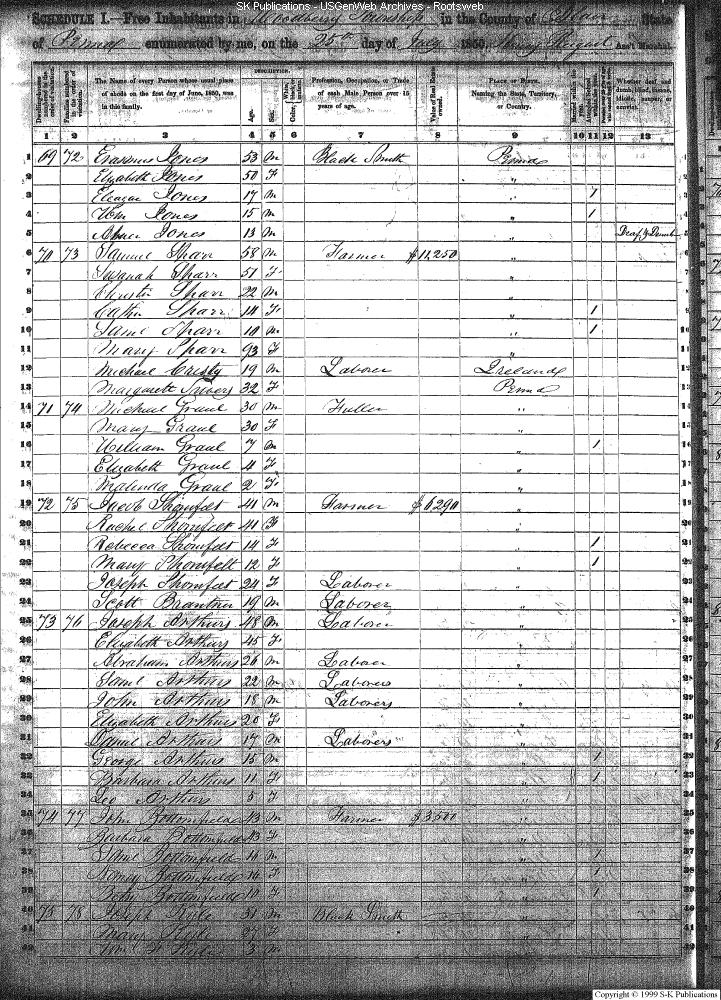 SK Publications - USGenWeb Archives - Rootsweb
SCHEDULE I.—Free Inhabitants in Woodberry Township in the County of Blair State
of Penna enumerated by me, on the 25th day of July 1850. Ass't Marshal.
The Name of every Person whose usual place of abode on the first day of June, 1850, was in this family.
DESCRIPTION.
Age. Sex. Color,
Profession, Occupation, or Trade of each Male Person over 15 years of age.
Value of Real Estate owned.
PLACE OF BIRTH. Naming the State, Territory, or Country.
Whether deaf and dumb, blind, insane, idiotic, pauper, or convict.
1 2 3 4 5 6 7 8 9 10 11 12 13
1 69 72 Erasmus Jones 53 m Black Smith Penna
2 Elizabeth Jones 50 F "
3 Eleazar Jones 17 m " 1
4 Wm Jones 15 m " 1
5 Abner Jones 13 m " Deaf & Dumb
6 70 73 Samuel Sharr 58 m Farmer $11,250 "
7 Susanah Sharr 51 F "
8 Sharr 22 m "
9 Cathn Sharr 14 F " 1
10 Saml Sharr 10 m " 1
11 Mary Sharr 93 F "
12 Michael Cristy 19 m Laborer Ireland
13 Margarett 32 F Penna
14 71 74 Michael Graul 30 m Fuller "
15 Mary Graul 30 F "
16 William Graul 7 m " 1
17 Elizabeth Graul 4 F "
18 Malinda Graul 2 F "
19 72 75 Jacob 41 m Farmer $6290 "
20 Rachel 41 F "
21 Rebecca 14 F " 1
22 Mary 12 F " 1
23 Joseph 24 F Laborer "
24 Scott Brantner 19 m Laborer "
25 73 76 Joseph Arthurs 48 m Laborer "
26 Elizabeth Arthurs 45 F "
27 Abraham Arthurs 26 m Laborer "
28 Saml Arthurs 22 m Laborers "
29 John Arthurs 18 m Laborers "
30 Elizabeth Arthurs 20 F "
31 Daniel Arthurs 17 m Laborers "
32 George Arthurs 15 m " 1
33 Barbara Arthurs 11 F " 1
34 Arthurs 5 F "
35 74 77 John Bottomfield 43 m Farmer $3500 "
36 Barbara Bottomfield 43 F "
37 Saml Bottomfield 16 m " 1
38 Nancy Bottomfield 14 F " 1
39 Bottomfield 10 F " 1
40 75 78 Joseph 31 m Black Smith "
41 Mary 27 F "
42 Wm 3 m "
Copyright © 1999 S-K Publications